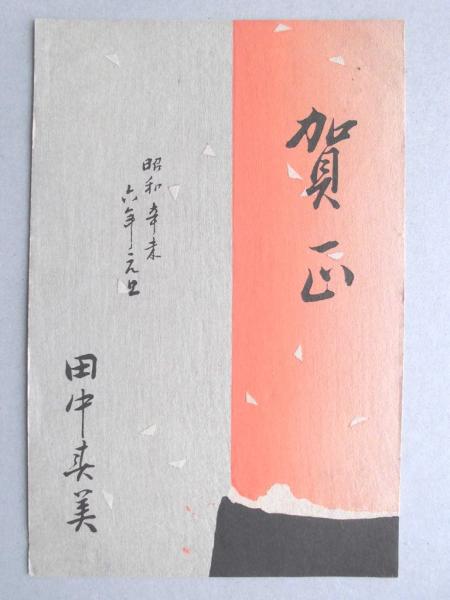 賀正
昭和辛未
六年元旦
田中真美